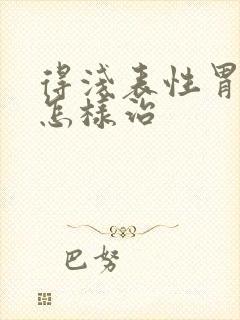 得浅表性胃
怎样治
巴努